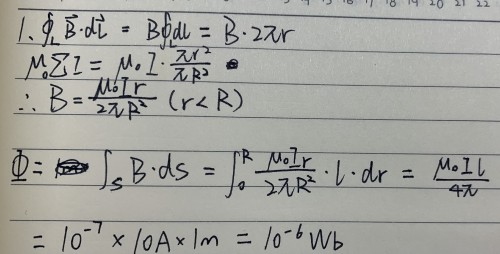 1. ∮_L B⃗·dl⃗ = B∮_L dl = B·2πr
μ₀ΣI = μ₀I·πr²/πR²
∴ B = μ₀Ir/2πR² (r<R)
Φ = ∫_S B·ds = ∫₀ᴿ μ₀Ir/2πR²·l·dr = μ₀Il/4π
= 10⁻⁷ × 10A × 1m = 10⁻⁶ Wb